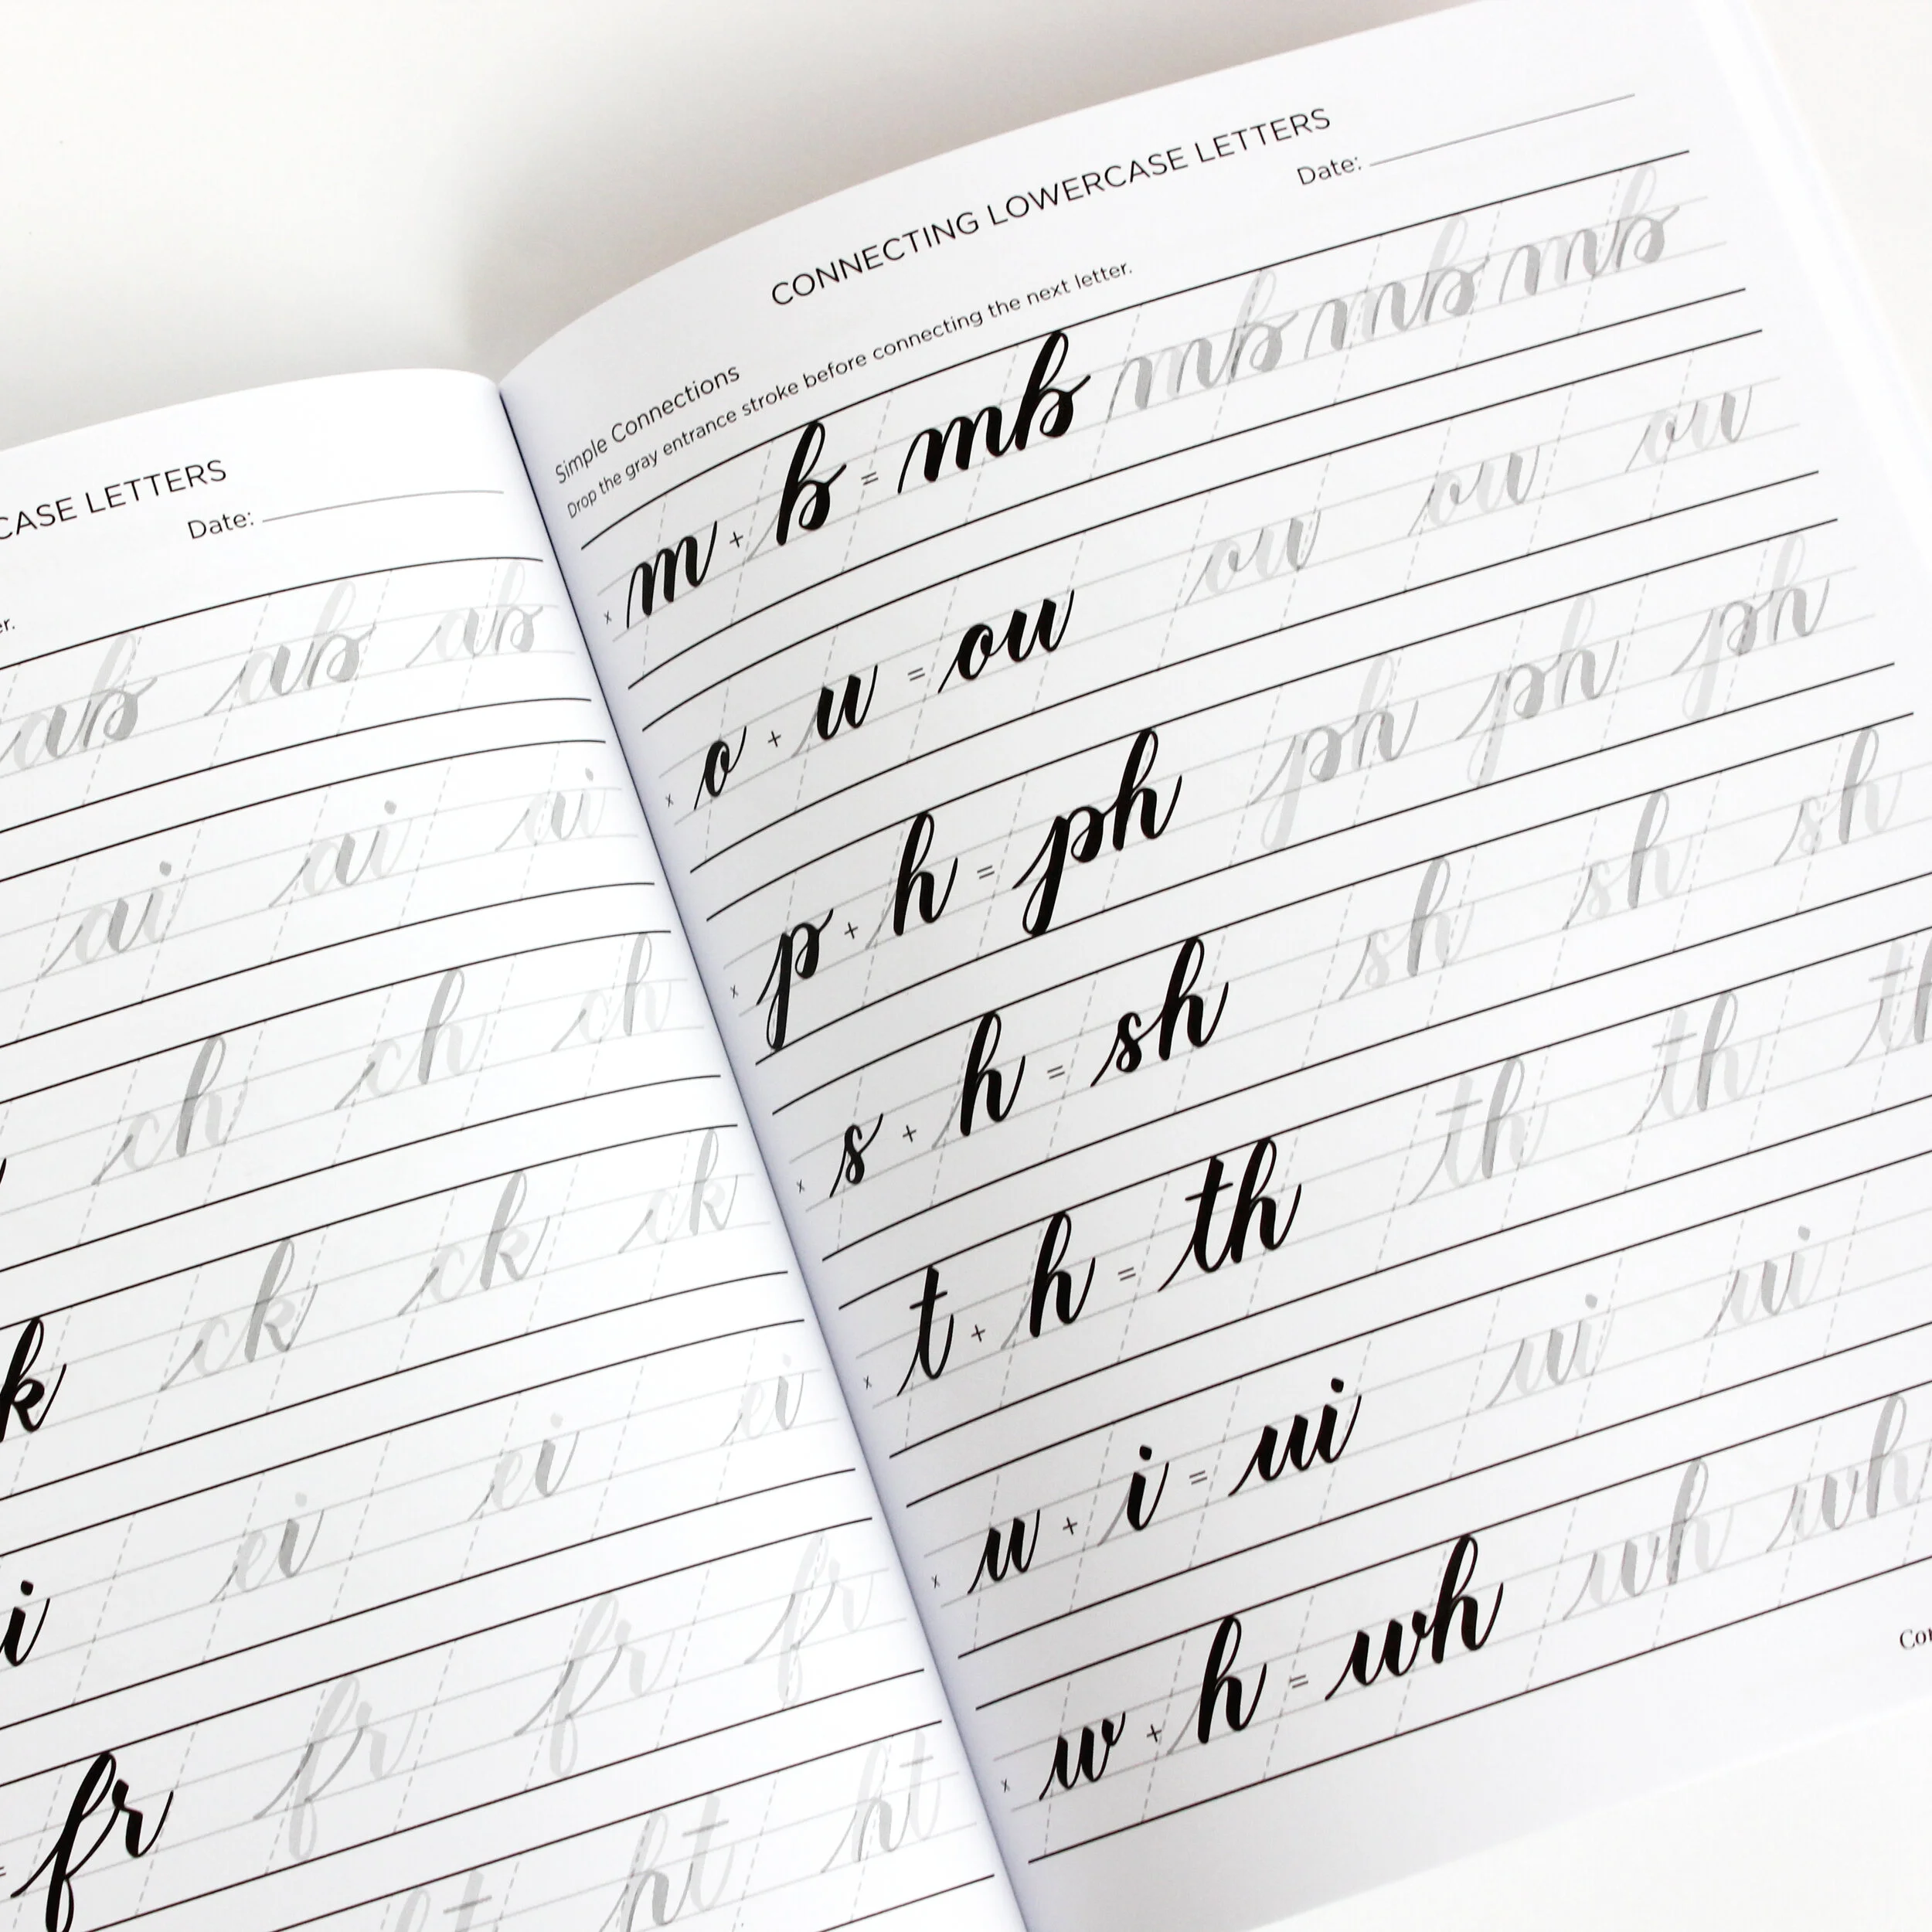 CASE LETTERS
Date:
er.
ab ab ab
ai ai ai
ch ch ch
k ck ck ck
i ei ei ei
= fr fr fr fr
ht ht
CONNECTING LOWERCASE LETTERS
Date:
Simple Connections
Drop the gray entrance stroke before connecting the next letter.
x m + b = mb mb mb mb
x o + u = ou ou ou ou
x p + h = ph ph ph ph
x s + h = sh sh sh sh
x t + h = th th th th
x u + i = ui ui ui
x w + h = wh wh wh